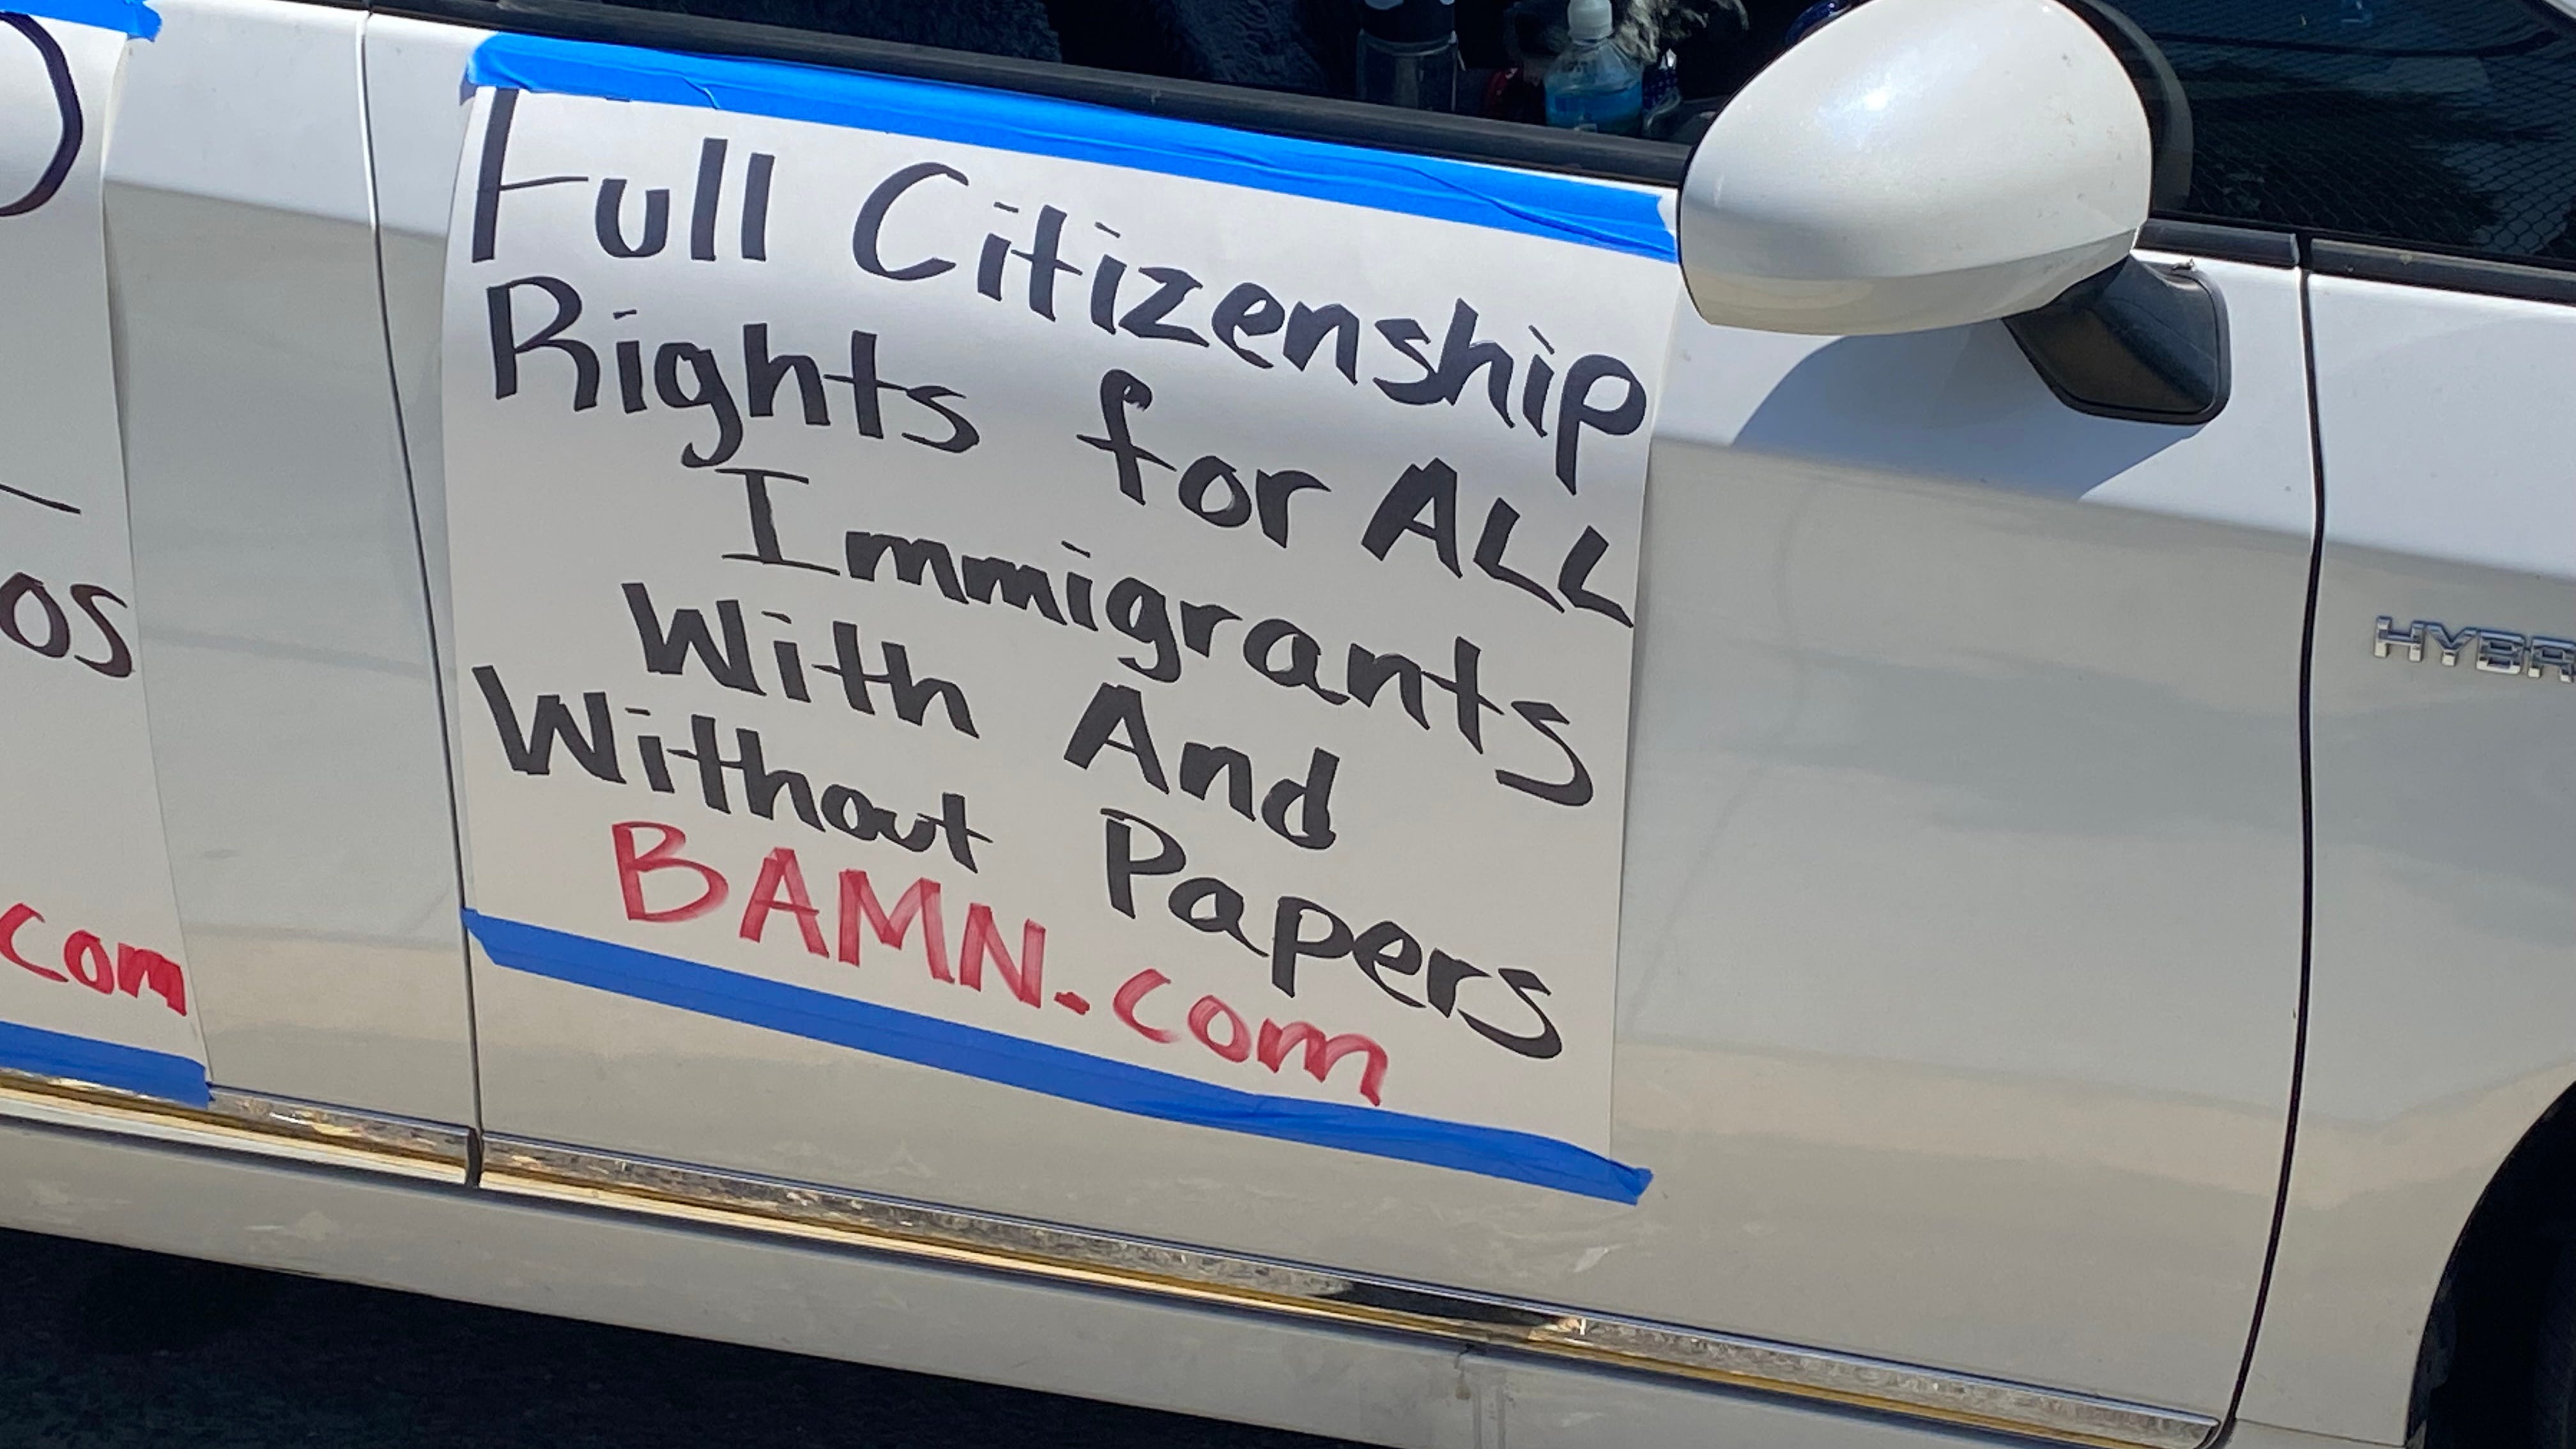 Full Citizenship
Rights for ALL
Immigrants
With And
Without Papers
BAMN.com
os
com